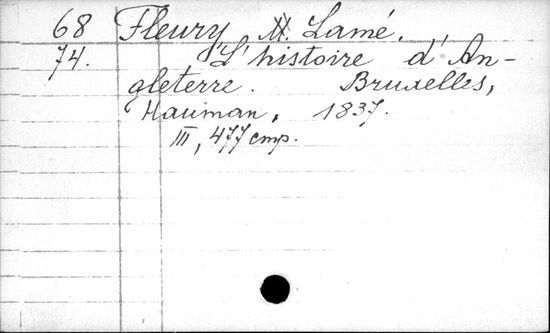 68 Fleury M. Lamé.
74. L'histoire d'An-
gleterre. Bruxelles,
Hauman, 1837.
III, 477 cmp.